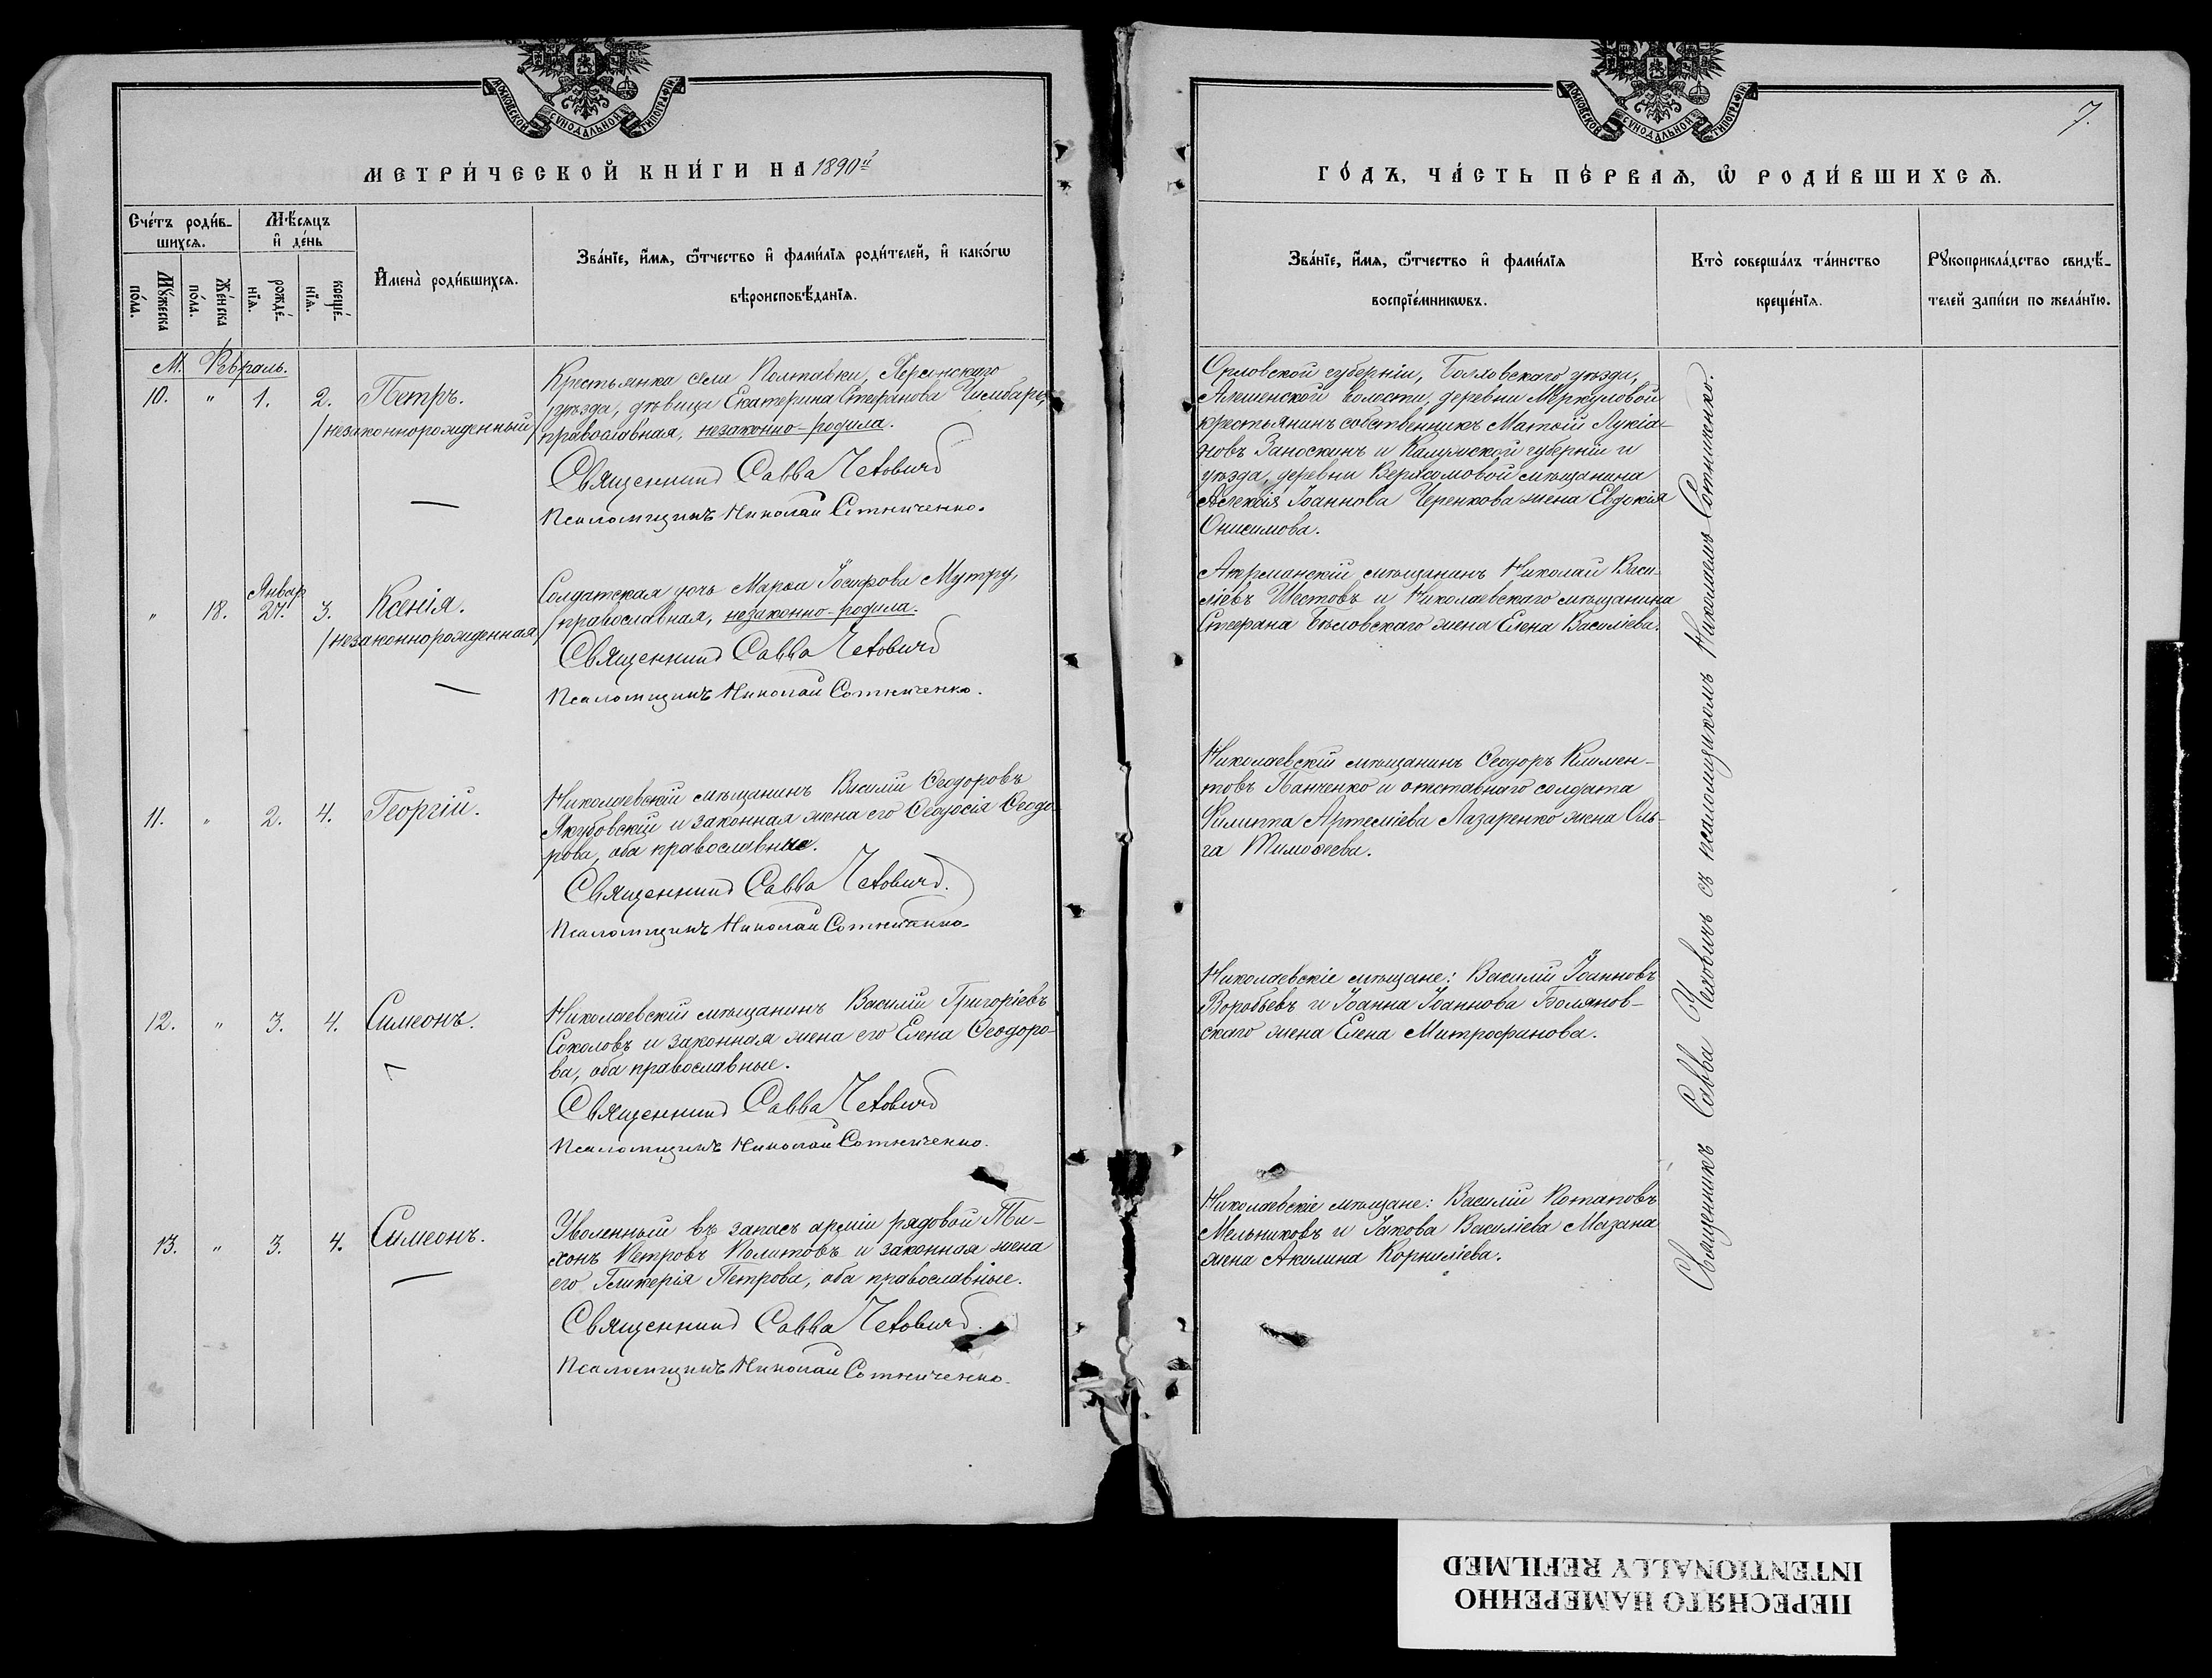 МОСКОВСКОЙ СѴНОДАЛЬНОЙ ТИПОГРАФІИ
МЕТРИ́ЧЕСКОЙ КНИ́ГИ НА 1890й
Сче́тъ роди́в-
шихсѧ.
Мѣ́сѧцъ
и҆ де́нь
Мꙋ́жеска
по́ла.
Же́нска
по́ла.
рожде́-
нїѧ.
креще́-
нїѧ.
И҆мена̀ роди́вшихсѧ.
Зва́нїе, и҆́мѧ, ѻ҆́тчество и҆ фами́лїѧ роди́телей, и҆ како́гѡ
вѣроисповѣ́данїѧ.
М. Февраль.
10. " 1. 2. Петръ.
/незаконнорожденный/
Крестьянка села Полтавки, Херсонскаго
уѣзда, дѣвица Екатерина Стефанова Чимбарь,
православная, незаконно-родила.
Священникъ Савва Чехович
Псаломщикъ Николай Сотниченко.
Январ
" 18. 27. 3. Ксенія.
/незаконнорожденная/
Солдатская дочь Марья Іосифова Мутру,
православная, незаконно-родила.
Священникъ Савва Чехович
Псаломщикъ Николай Сотниченко.
11. " 2. 4. Георгій.
Николаевскій мѣщанинъ Василій Ѳеодоровъ
Якубовскій и законная жена его Ѳеодосія Ѳеодо-
рова, оба православные.
Священникъ Савва Чехович.
Псаломщикъ Николай Сотниченко.
12. " 3. 4. Симеонъ.
Николаевскій мѣщанинъ Василій Григоріевъ
Соколовъ и законная жена его Елена Ѳеодоро-
ва, оба православные.
Священникъ Савва Чехович
Псаломщикъ Николай Сотниченко.
13. " 3. 4. Симеонъ.
Уволенный въ запасъ арміи рядовой Ти-
хонъ Петровъ Политовъ и законная жена
его Гликерія Петрова, оба православные.
Священникъ Савва Чехович.
Псаломщикъ Николай Сотниченко.
МОСКОВСКОЙ СѴНОДАЛЬНОЙ ТИПОГРАФІИ
7.
ГО́ДЪ, ЧА́СТЬ ПЕ́РВАѦ, Ѡ҆ РОДИ́ВШИХСѦ.
Зва́нїе, и҆́мѧ, ѻ҆́тчество и҆ фами́лїѧ
воспрїе́мникѡвъ.
Кто̀ соверша́лъ та́инство
креще́нїѧ.
Рꙋкоприкла́дство свидѣ́-
телей за́писи по жела́нїю.
Орловской губерніи, Болховскаго уѣзда,
Алешенской волости, деревни Меркуловой
крестьянинъ собственникъ Матѳій Лукіа-
новъ Заноскинъ и Калужской губерніи и
уѣзда, деревни мѣщанина
Алексія Іоаннова Черенкова жена Евдокія
Онисимова.
Аккерманскій мѣщанинъ Николай Васи-
ліевъ Шестовъ и Николаевскаго мѣщанина
Стефана Бѣловскаго жена Елена Василіева.
Николаевскій мѣщанинъ Ѳеодоръ Климен-
товъ Панченко и отставнаго солдата
Филиппа Артеміева Лазаренко жена Оль-
га Тимоѳеева.
Николаевскіе мѣщане: Василій Іоанновъ
Воробьевъ и Іоанна Іоаннова Болянов-
скаго жена Елена Митрофанова.
Николаевскіе мѣщане: Василій Потаповъ
Мельниковъ и Іакова Василіева Мазана
жена Акилина Корниліева.
Священникъ Савва Чеховичъ съ псаломщикомъ Николаемъ Сотниченко.
ПЕРЕСНЯТО НАМЕРЕННО
INTENTIONALLY REFILMED